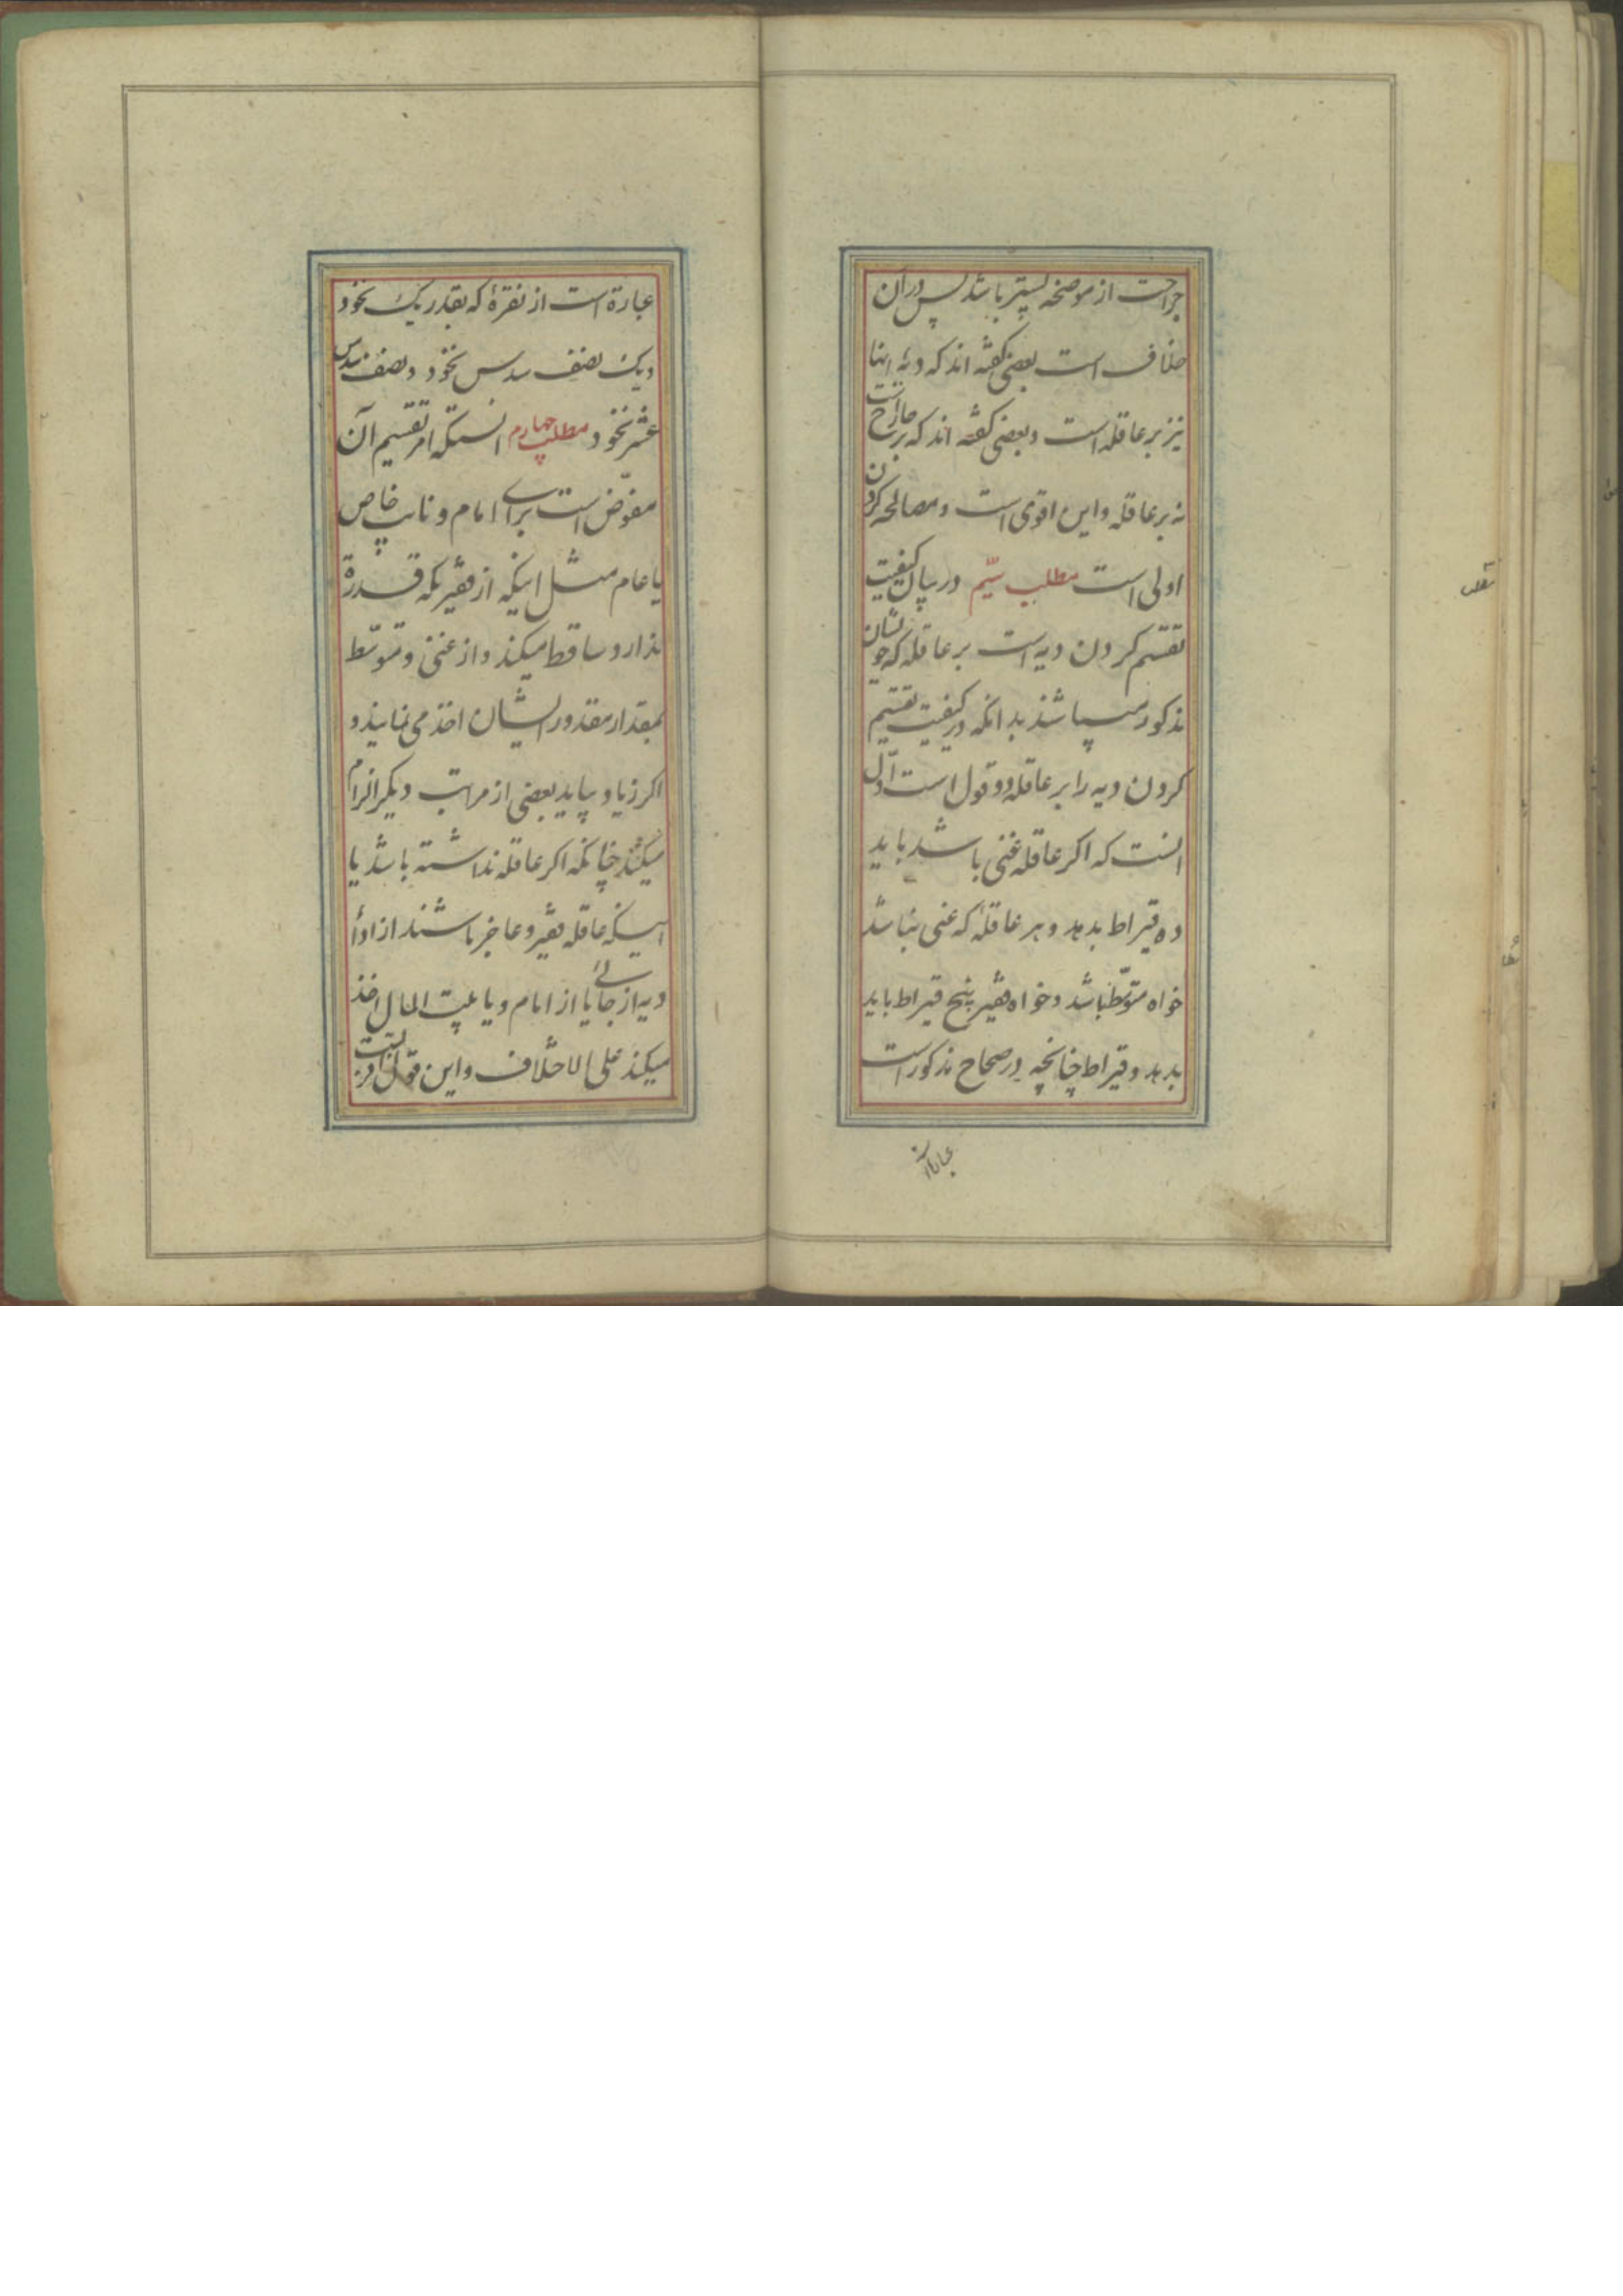 جراحت از موضحه پستتر باشد پس در آن
خلاف است بعضی گفته اند که دیه اینها
نیز بر عاقله است و بعضی گفته اند که بر جارح است
نه بر عاقله و این اقوی است و مصالحه کردن
اولی است مطلب سیّم در بیان کیفیت
تقسیم کردن دیه است بر عاقله که خویشان
مذکور میباشند بدانکه در کیفیت تقسیم
کردن دیه را بر عاقله دو قول است اوّل
انست که اکر عاقله غنی باشد باید
ده قیراط بدهد و هر عاقلهٔ که غنی نباشد
خواه متوسّط باشد و خواه فقیر پنج قیراط باید
بدهد و قیراط چنانچه در صحاح مذکور است
عبارة است از نقرهٔ که بقدر یک نخود
و یک نصف سدس نخود و نصف سدس
عشر نخود مطلب چهارم انستکه امر تقسیم آن
مفوّض است برای امام و نایب خاص
یا عام مثل اینکه از فقیریکه قدرة
ندارد ساقط میکند و از غنی و متوسّط
بمقدار مقدور ایشان اخذ می نمایند و
اکر زیاد بیاید بعضی از مراتب دیگر الزام
میکنند چنانکه اکر عاقله نداشته باشد یا
اینکه عاقله فقیر و عاجز باشند از اداء
دیه از جانی یا از امام و یا بیت المال اخذ
میکند علی الاختلاف و این قول اقرب است